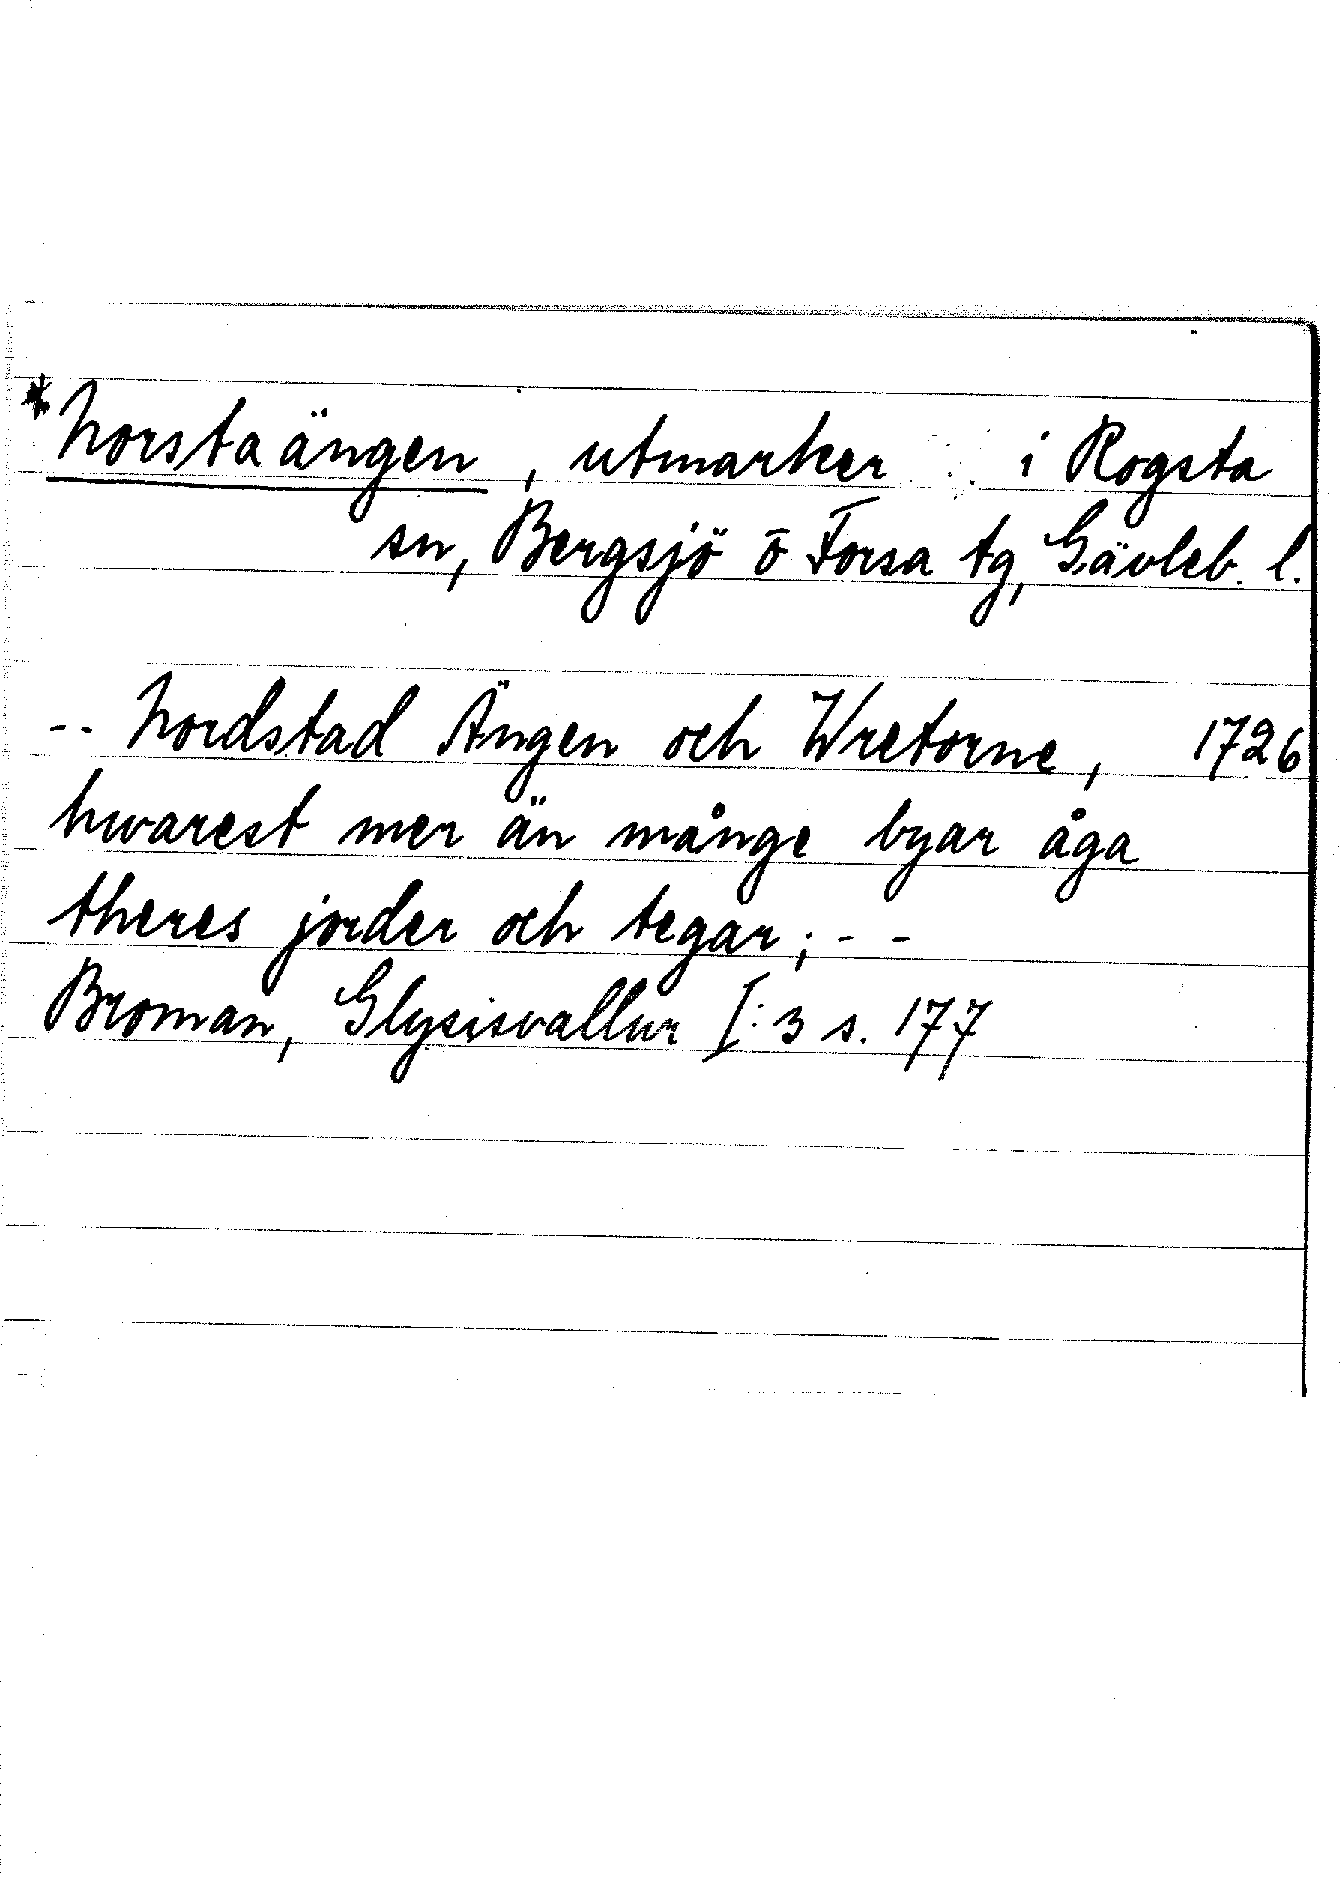 *Norstaängen, utmarker i Rogsta
sn, Bergsjö o Forsa tg, Gävleb. l.
-- Nordstad Ängen och Wretorne, 1726
hwarest mer än månge byar åga
theres jorder och tegar; - -
Broman, Glysisvallur I:3 s. 177